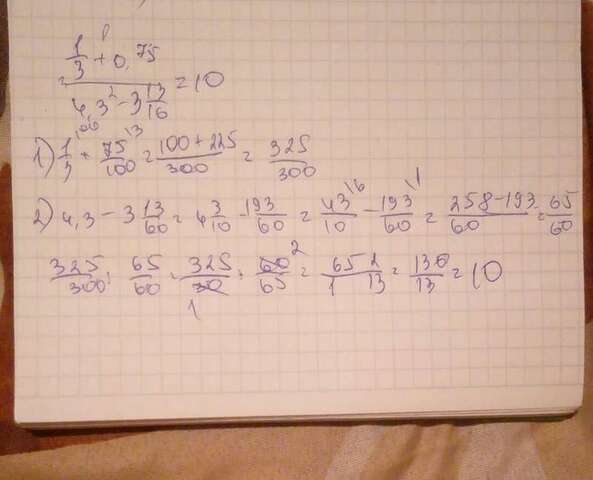 1/3 + 0,75
= 10
4,3 - 3 13/16
1) 1/3 + 75/100 = 100+225/300 = 325/300
2) 4,3 - 3 13/60 = 4 3/10 - 193/60 = 43/10 - 193/60 = 258-193/60 = 65/60
325/300 : 65/60 = 325/30 · 60/65 = 65 2/1 13 = 130/13 = 10